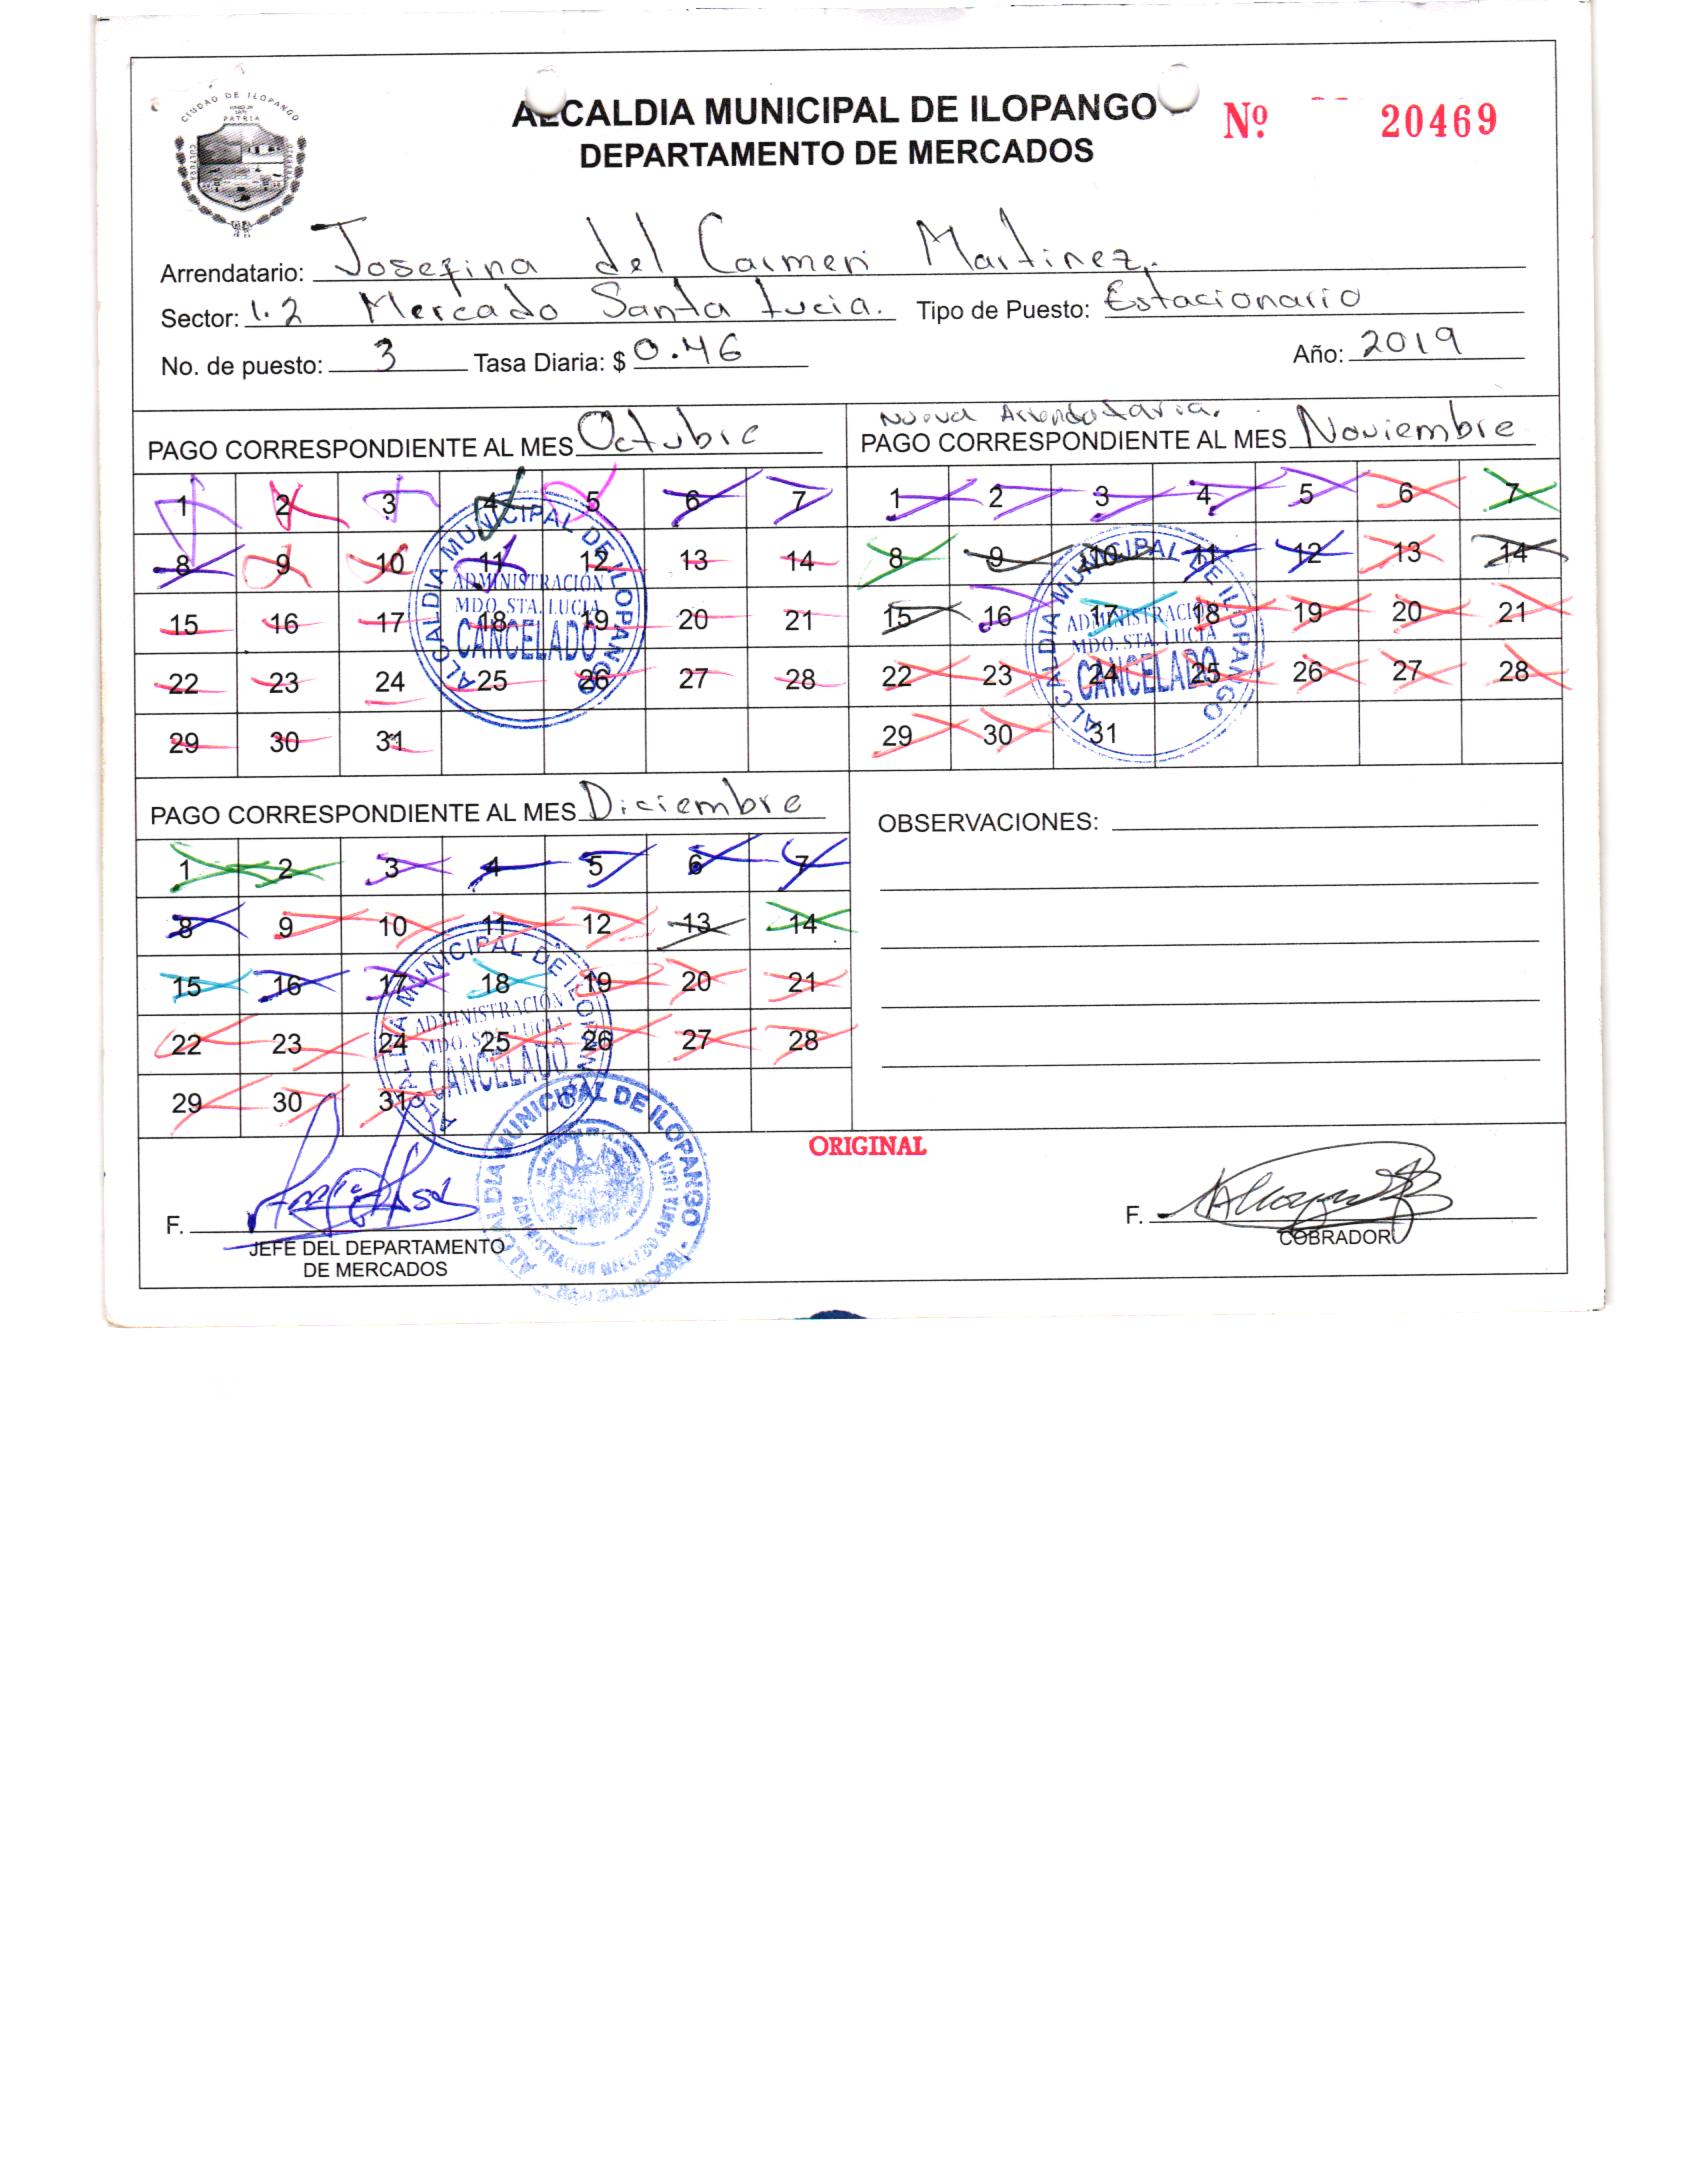 CIUDAD DE ILOPANGO
PATRIA
CULTURA
ALCALDIA MUNICIPAL DE ILOPANGO
DEPARTAMENTO DE MERCADOS
Nº 20469
Arrendatario: Josefina del Carmen Martinez.
Sector: 1.2 Mercado Santa Lucia. Tipo de Puesto: Estacionario
No. de puesto: 3 Tasa Diaria: $ 0.46 Año: 2019
PAGO CORRESPONDIENTE AL MES Octubre
1 2 3 4 5 6 7
8 9 10 11 12 13 14
15 16 17 18 19 20 21
22 23 24 25 26 27 28
29 30 31
ALCALDIA MUNICIPAL DE ILOPANGO
ADMINISTRACIÓN
MDO. STA. LUCIA
CANCELADO
Nueva Arrendataria.
PAGO CORRESPONDIENTE AL MES Noviembre
1 2 3 4 5 6 7
8 9 10 11 12 13 14
15 16 17 18 19 20 21
22 23 24 25 26 27 28
29 30 31
ALCALDIA MUNICIPAL DE ILOPANGO
ADMINISTRACIÓN
MDO. STA. LUCIA
CANCELADO
PAGO CORRESPONDIENTE AL MES Diciembre
1 2 3 4 5 6 7
8 9 10 11 12 13 14
15 16 17 18 19 20 21
22 23 24 25 26 27 28
29 30 31
ALCALDIA MUNICIPAL DE ILOPANGO
ADMINISTRACIÓN
MDO. STA. LUCIA
CANCELADO
OBSERVACIONES:
ORIGINAL
F.
JEFE DEL DEPARTAMENTO
DE MERCADOS
ALCALDIA MUNICIPAL DE ILOPANGO
ADMINISTRACION MERCADO SANTA LUCIA
F.
COBRADOR